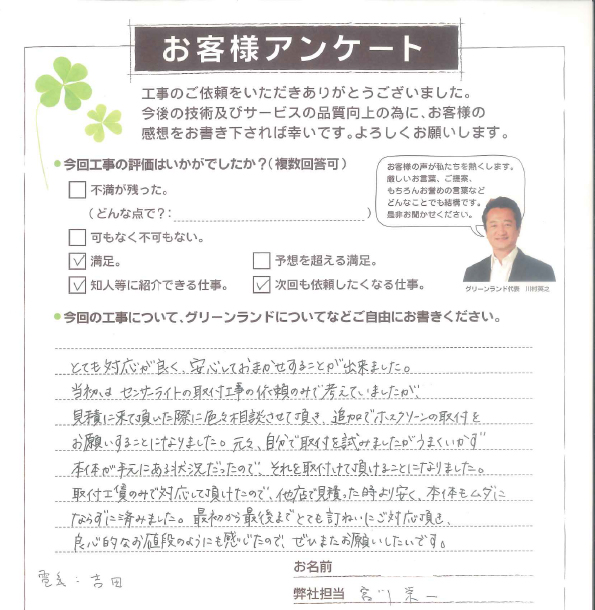 お客様アンケート
工事のご依頼をいただきありがとうございました。
今後の技術及びサービスの品質向上の為に、お客様の
感想をお書き下されば幸いです。よろしくお願いします。
今回工事の評価はいかがでしたか?(複数回答可)
不満が残った。
(どんな点で?: )
可もなく不可もない。
満足。 予想を超える満足。
知人等に紹介できる仕事。 次回も依頼したくなる仕事。
お客様の声が私たちを熱くします。
厳しいお言葉、ご提案、
もちろんお誉めの言葉など
どんなことでも結構です。
是非お聞かせください。
グリーンランド代表 川村英之
今回の工事について、グリーンランドについてなどご自由にお書きください。
とても対応が良く、安心しておまかせすることが出来ました。
当初は センサーライトの取付工事の依頼のみで考えていましたが、
見積に来て頂いた際に色々相談させて頂き、追加でホスクリーンの取付を
お願いすることになりました。元々、自分で取付を試みましたがうまくいかず
本体が手元にある状況だったので、それを取付けて頂けることになりました。
取付工賃のみで対応して頂けたので、他店で見積った時より安く、本体もムダに
ならずに済みました。最初から最後までとても訂ねいにご対応頂き、
良心的なお値段のようにも感じたので、ぜひまたお願いしたいです。
お名前
電気:吉田
弊社担当 栄一